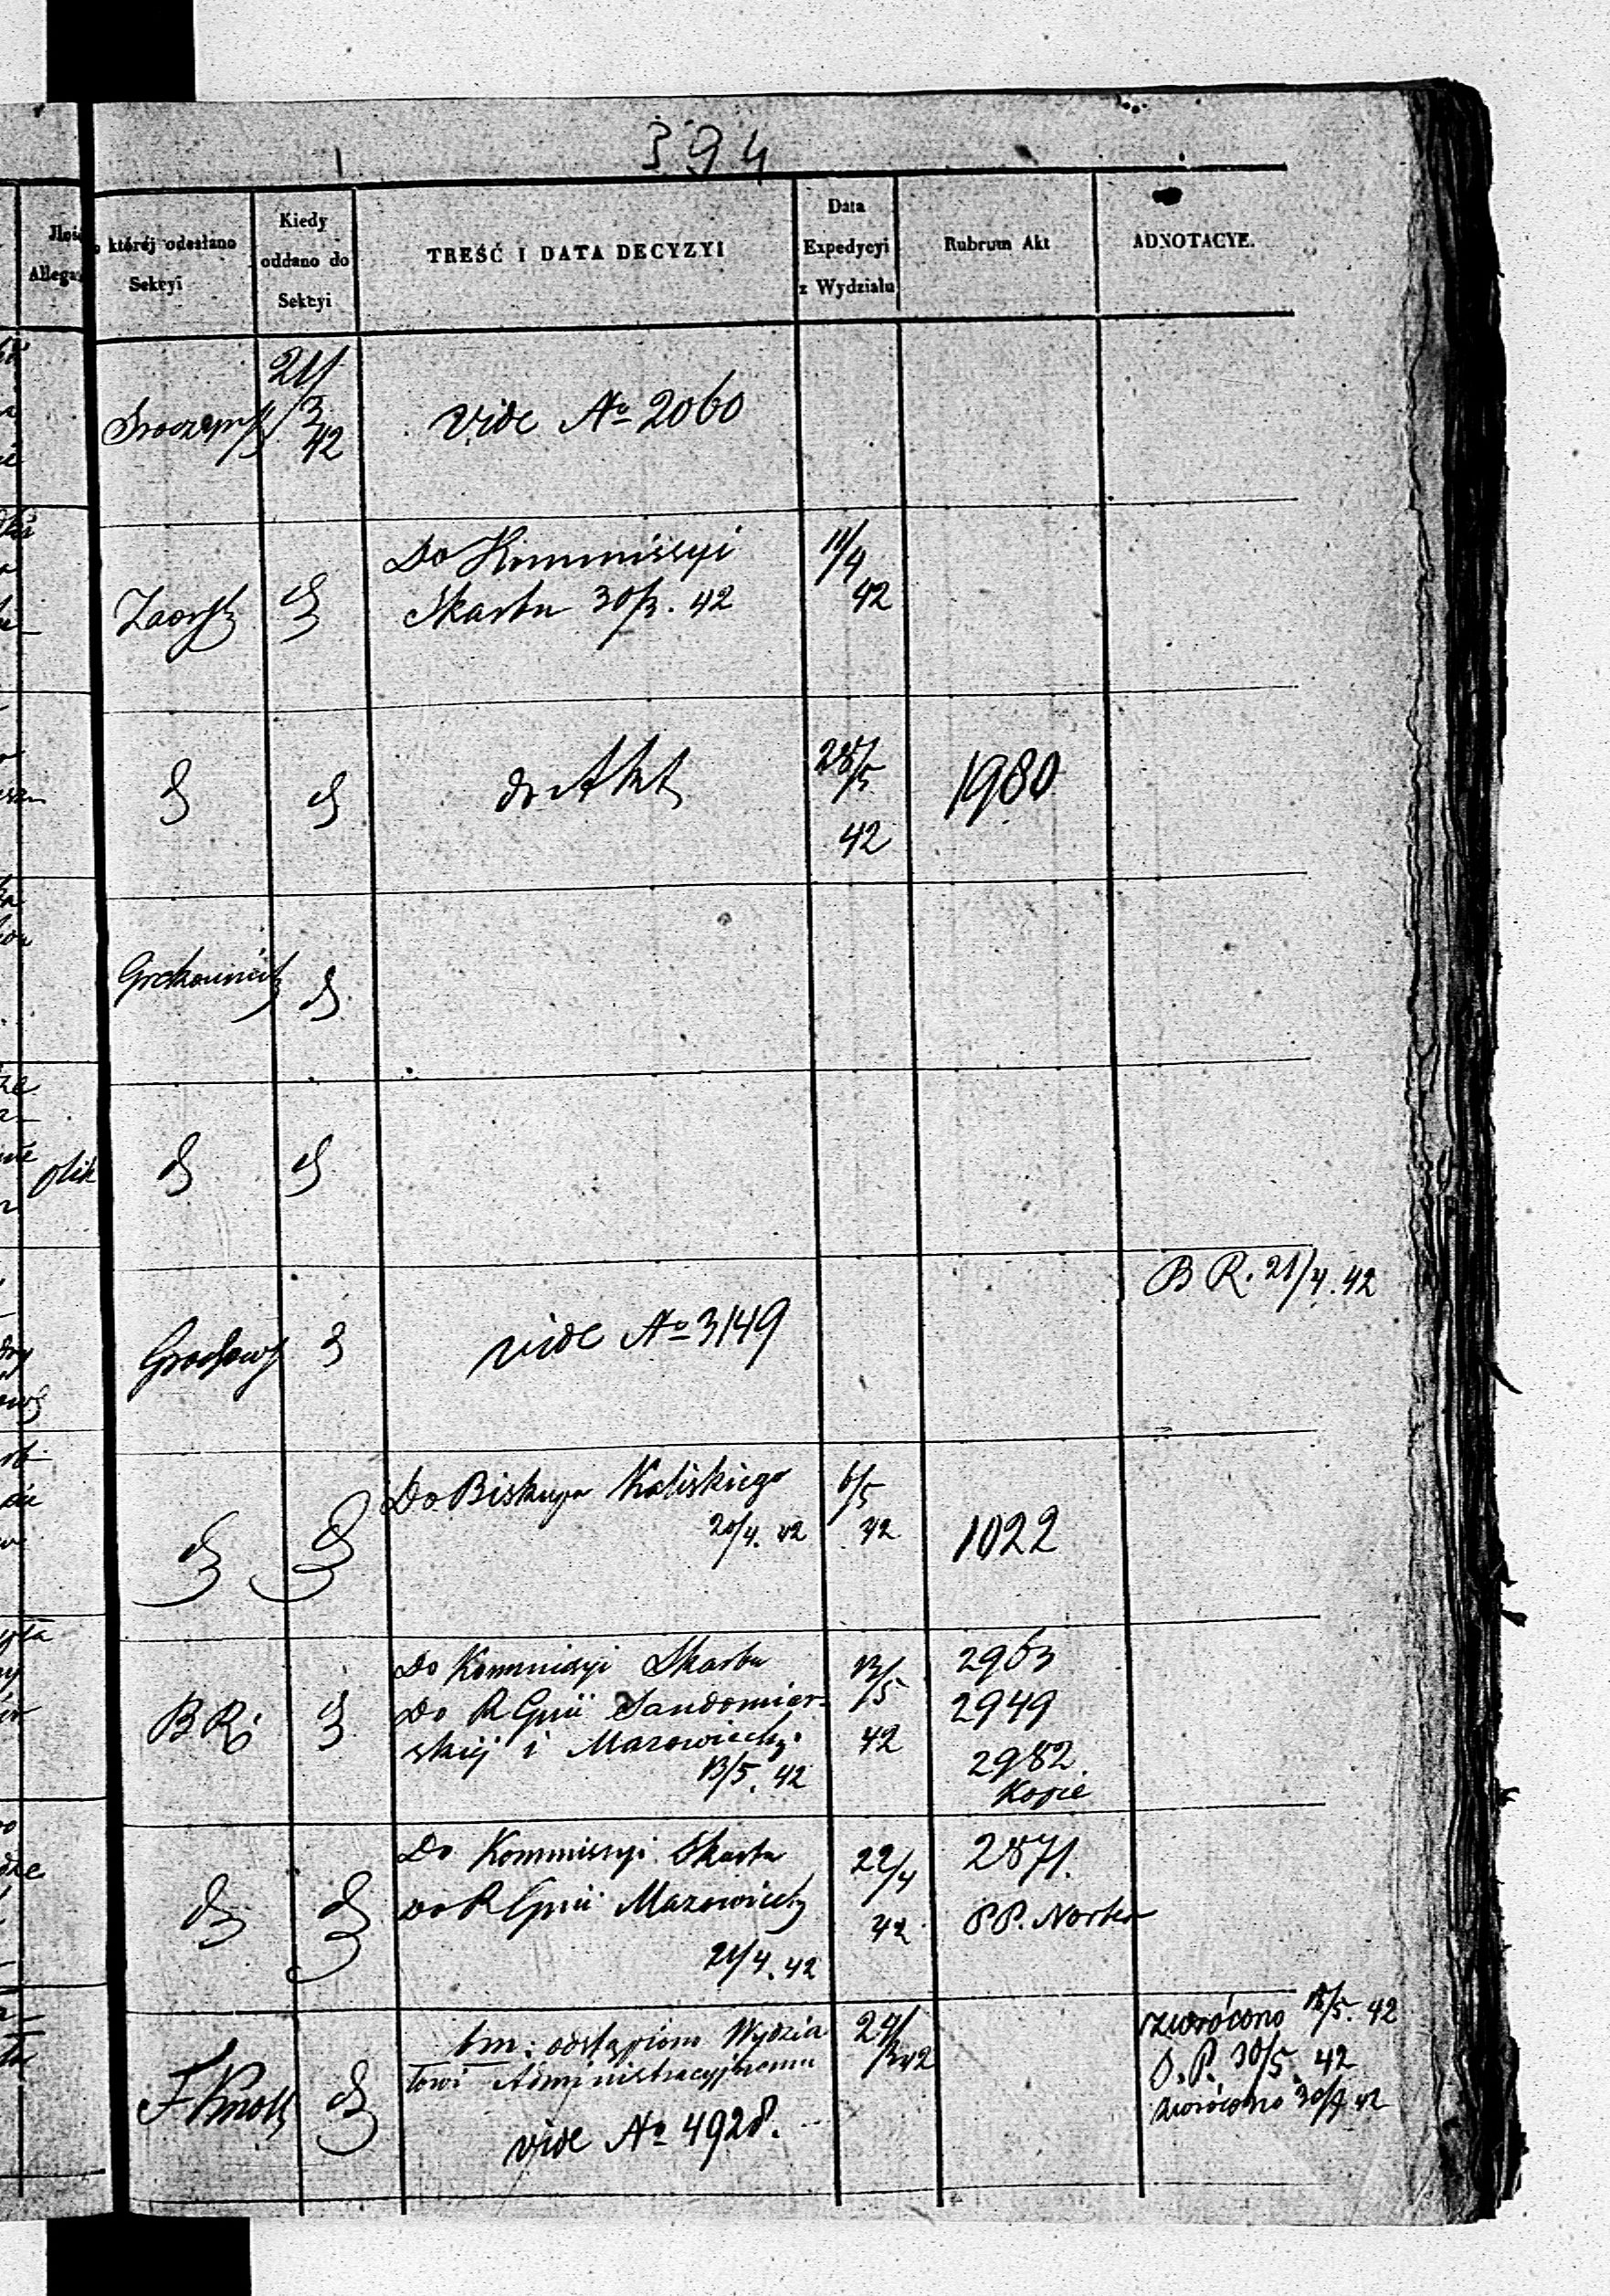 394
Ilość
Allega
któréj odesłano
Sekcyi
Kiedy
oddano do
Sekcyi
TREŚĆ I DATA DECYZYI
Data
Expedycyi
z Wydziału
Rubrum Akt
ADNOTACYE.
21/3 42
vide No 2060
Do Kommissyi
Skarbu 30/3. 42
11/4
42
do Akt
28/5
42
1980
plik
B R. 21/4. 42
vide No 3149
Do Biskupa Kaliskiego
20/4. 42
6/5
42
1022
B R.
Do Kommissyi Skarbu
Do R Gnii Sandomier-
skiéj i Mazowieckj.
13/5. 42
13/5
42
2963
2949
2982.
Kopie
Do Kommissyi Skarbu
do R Gnii Mazowieck
21/4. 42
22/4
42
2871.
PP.
odstąpiono Wydzia
łowi Administracyjnemu
vide No 4928.
24/
42
zwrócono 18/5. 42
O. P. 30/5. 42
zwrócono